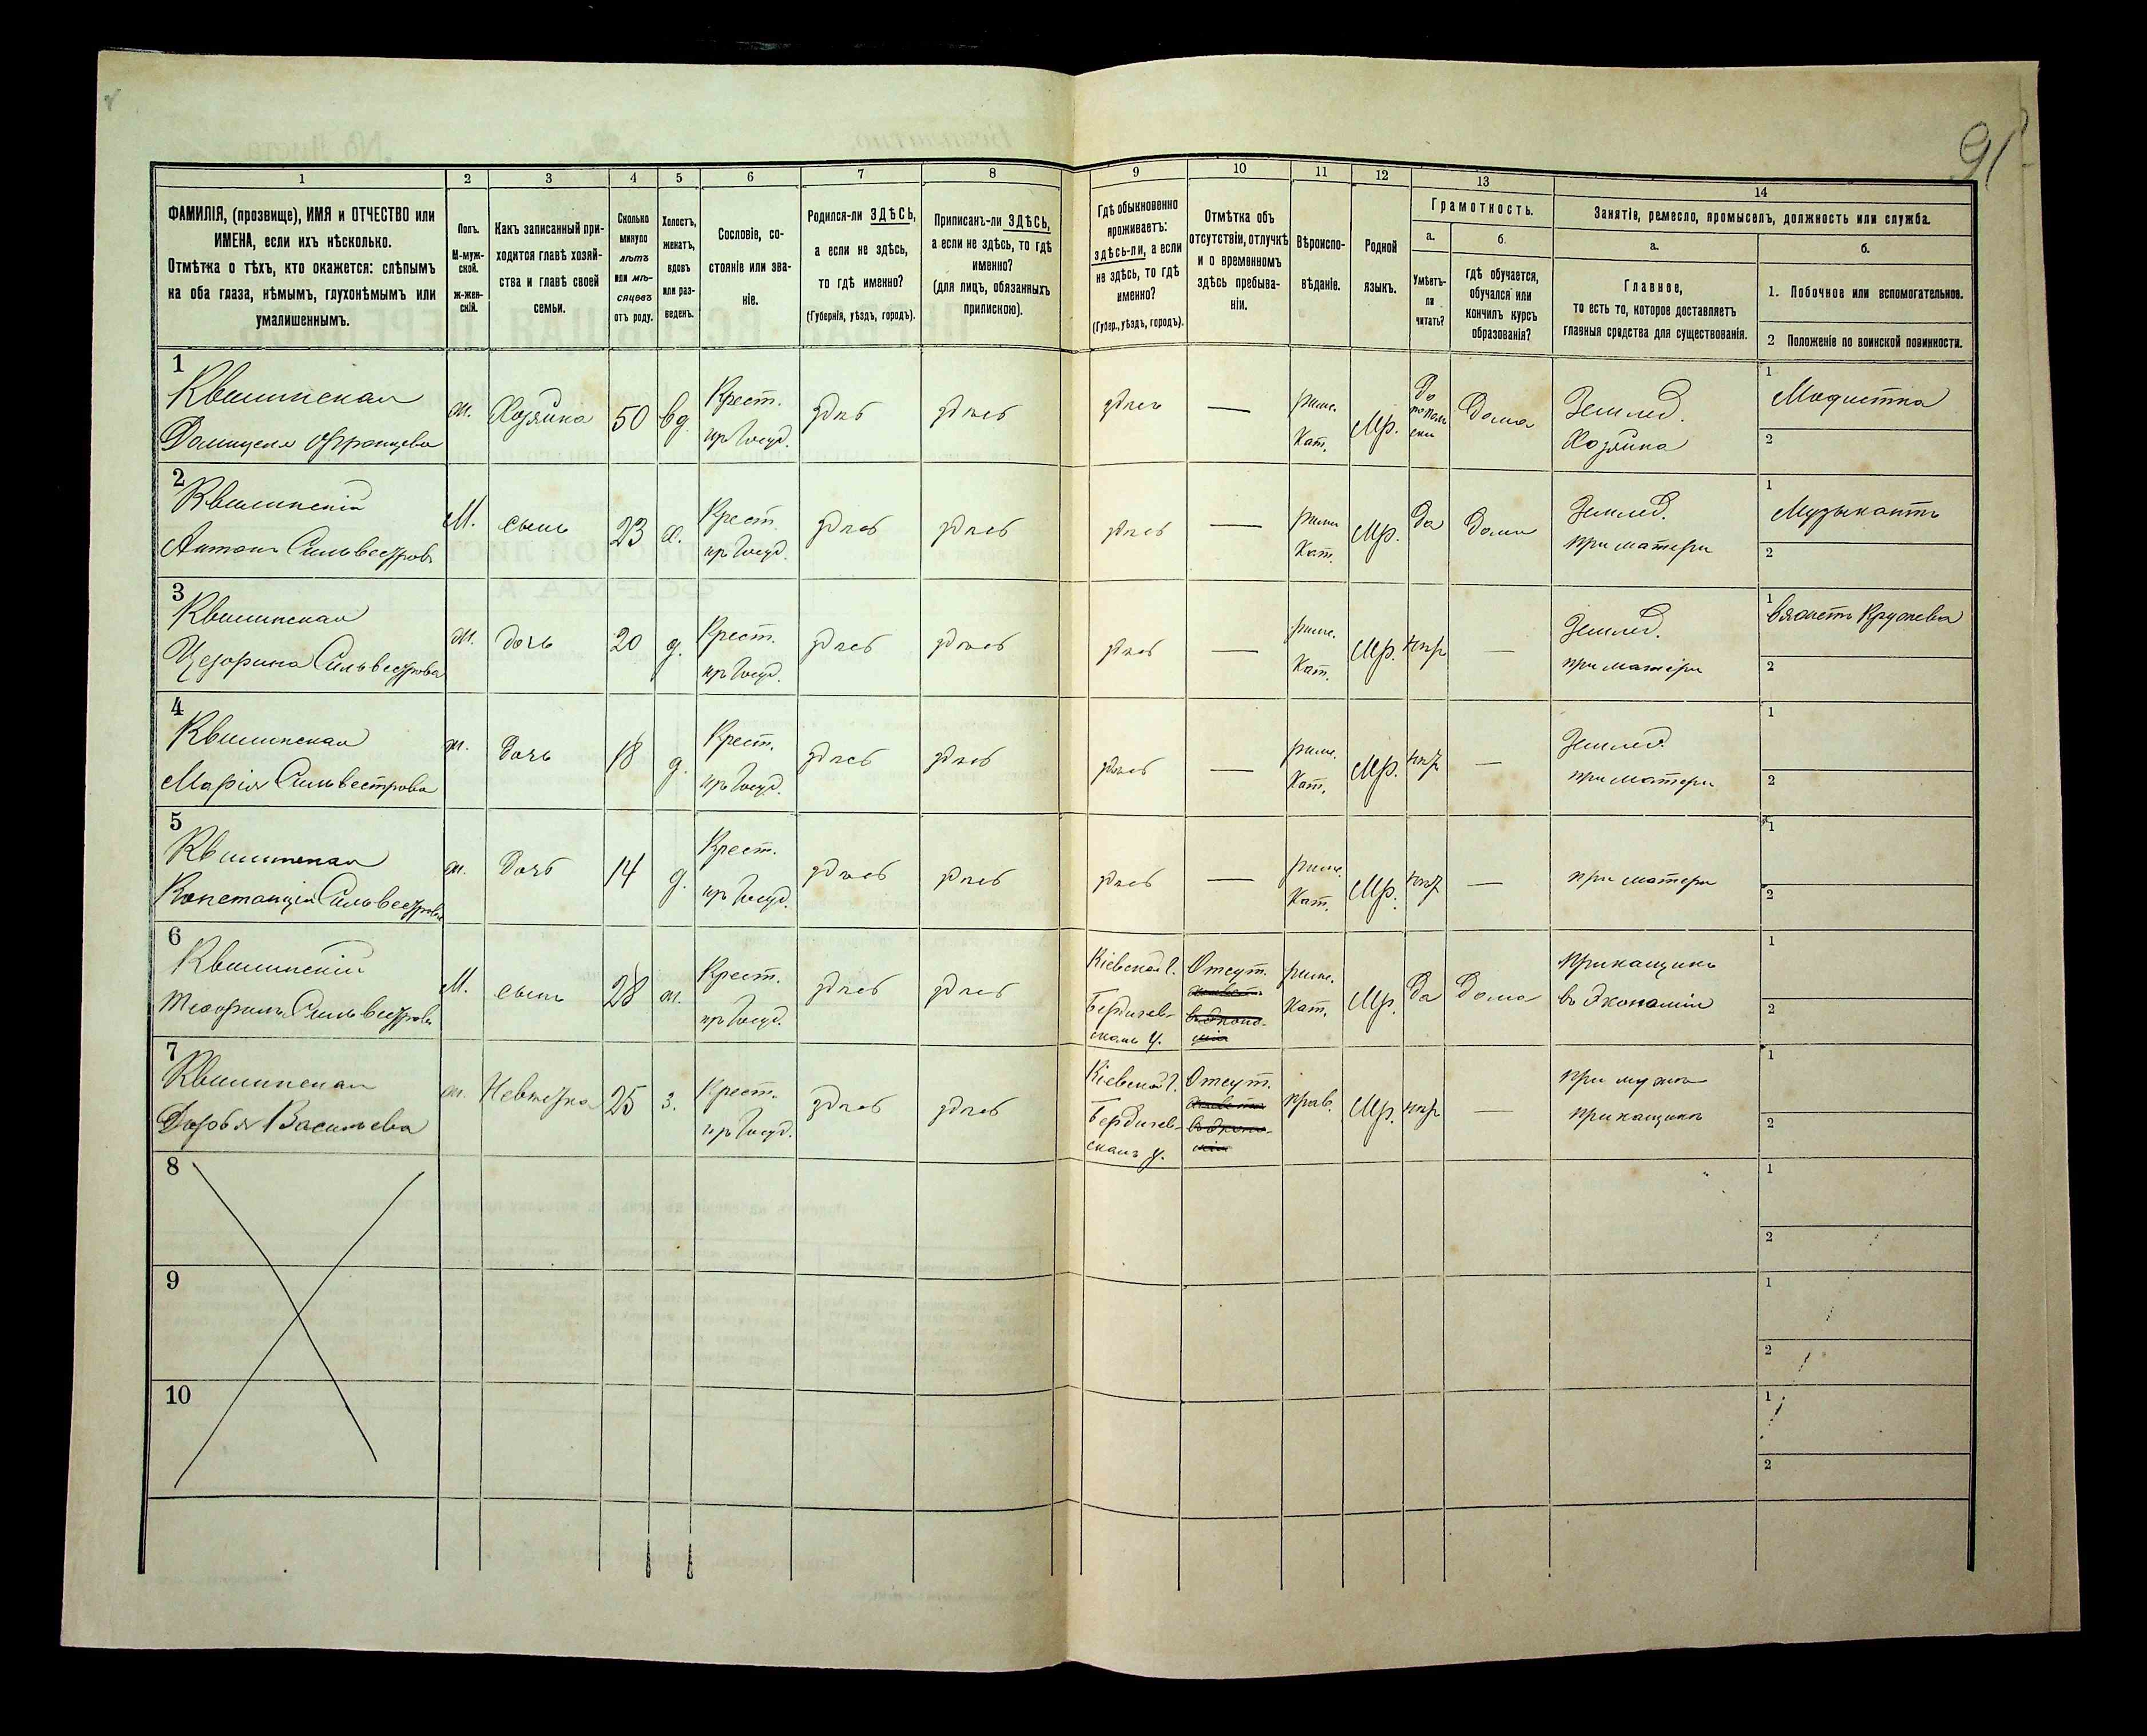 91
1
2
3
4
5
6
7
8
9
10
11
12
13
14
ФАМИЛІЯ, (прозвище), ИМЯ и ОТЧЕСТВО или
ИМЕНА, если ихъ нѣсколько.
Отмѣтка о тѣхъ, кто окажется: слѣпымъ
на оба глаза, нѣмымъ, глухонѣмымъ или
умалишеннымъ.
Полъ.
М-муж-
ской.
ж-жен-
скій.
Какъ записанный при-
ходится главѣ хозяй-
ства и главѣ своей
семьи.
Сколько
минуло
лѣтъ
или мѣ-
сяцевъ
отъ роду.
Холостъ,
женатъ,
вдовъ
или раз-
веденъ.
Сословіе, со-
стояніе или зва-
ніе.
Родился-ли ЗДѢСЬ,
а если не здѣсь,
то гдѣ именно?
(Губернія, уѣздъ, городъ).
Приписанъ-ли ЗДѢСЬ,
а если не здѣсь, то гдѣ
именно?
(для лицъ, обязанныхъ
припискою).
Гдѣ обыкновенно
проживаетъ:
здѣсь-ли, а если
не здѣсь, то гдѣ
именно?
(Губер., уѣздъ, городъ).
Отмѣтка объ
отсутствіи, отлучкѣ
и о временномъ
здѣсь пребыва-
ніи.
Вѣроиспо-
вѣданіе.
Родной
языкъ.
Грамотность.
а.
Умѣетъ-
ли
читать?
б.
гдѣ обучается,
обучался или
кончилъ курсъ
образованія?
Занятіе, ремесло, промыселъ, должность или служба.
а.
Главное,
то есть то, которое доставляетъ
главныя средства для существованія.
б.
1. Побочное или вспомогательное.
2 Положеніе по воинской повинности.
1
Квилинская
Домицеля Францева
ж.
Хозяйка
50
вд.
Крест.
из Госуд.
здѣсь
здѣсь
здѣсь
—
римс.
Кат.
Мр.
Да
Дома
Землед.
Хозяйка
1
Модистка
2
2
Квилинскій
Антонъ Сильвестровъ
М.
сынъ
23
х.
Крест.
из Госуд.
здѣсь
здѣсь
здѣсь
—
римс.
Кат.
Мр.
Да
Дома
Землед.
при матери
1
Музыкантъ
2
3
Квилинская
Цезарина Сильвестрова
ж.
дочь
20
д.
Крест.
из Госуд.
здѣсь
здѣсь
здѣсь
—
римс.
Кат.
Мр.
—
Землед.
при матери
1
вяжетъ Кружева
2
4
Квилинская
Марія Сильвестрова
ж.
Дочь
18
д.
Крест.
из Госуд.
здѣсь
здѣсь
здѣсь
—
римс.
Кат.
Мр.
—
Землед.
при матери
1
2
5
Квилинская
Констанція Сильвестрова
ж.
Дочь
14
д.
Крест.
из Госуд.
здѣсь
здѣсь
здѣсь
—
римс.
Кат.
Мр.
—
при матери
1
2
6
Квилинскій
Теофилъ Сильвестровъ
М.
сынъ
28
ж.
Крест.
из Госуд.
здѣсь
здѣсь
Кіевской г.
Бердичев-
скомъ у.
Отсут.
римс.
Кат.
Мр.
Да
Дома
Прикащикъ
въ Экономіи
1
2
7
Квилинская
Дарья Васильева
ж.
Невѣстка
25
з.
Крест.
из Госуд.
здѣсь
здѣсь
Кіевской г.
Бердичев-
скомъ у.
Отсут.
прав.
Мр.
—
при мужѣ
прикащикѣ
1
2
8
1
2
9
1
2
10
1
2